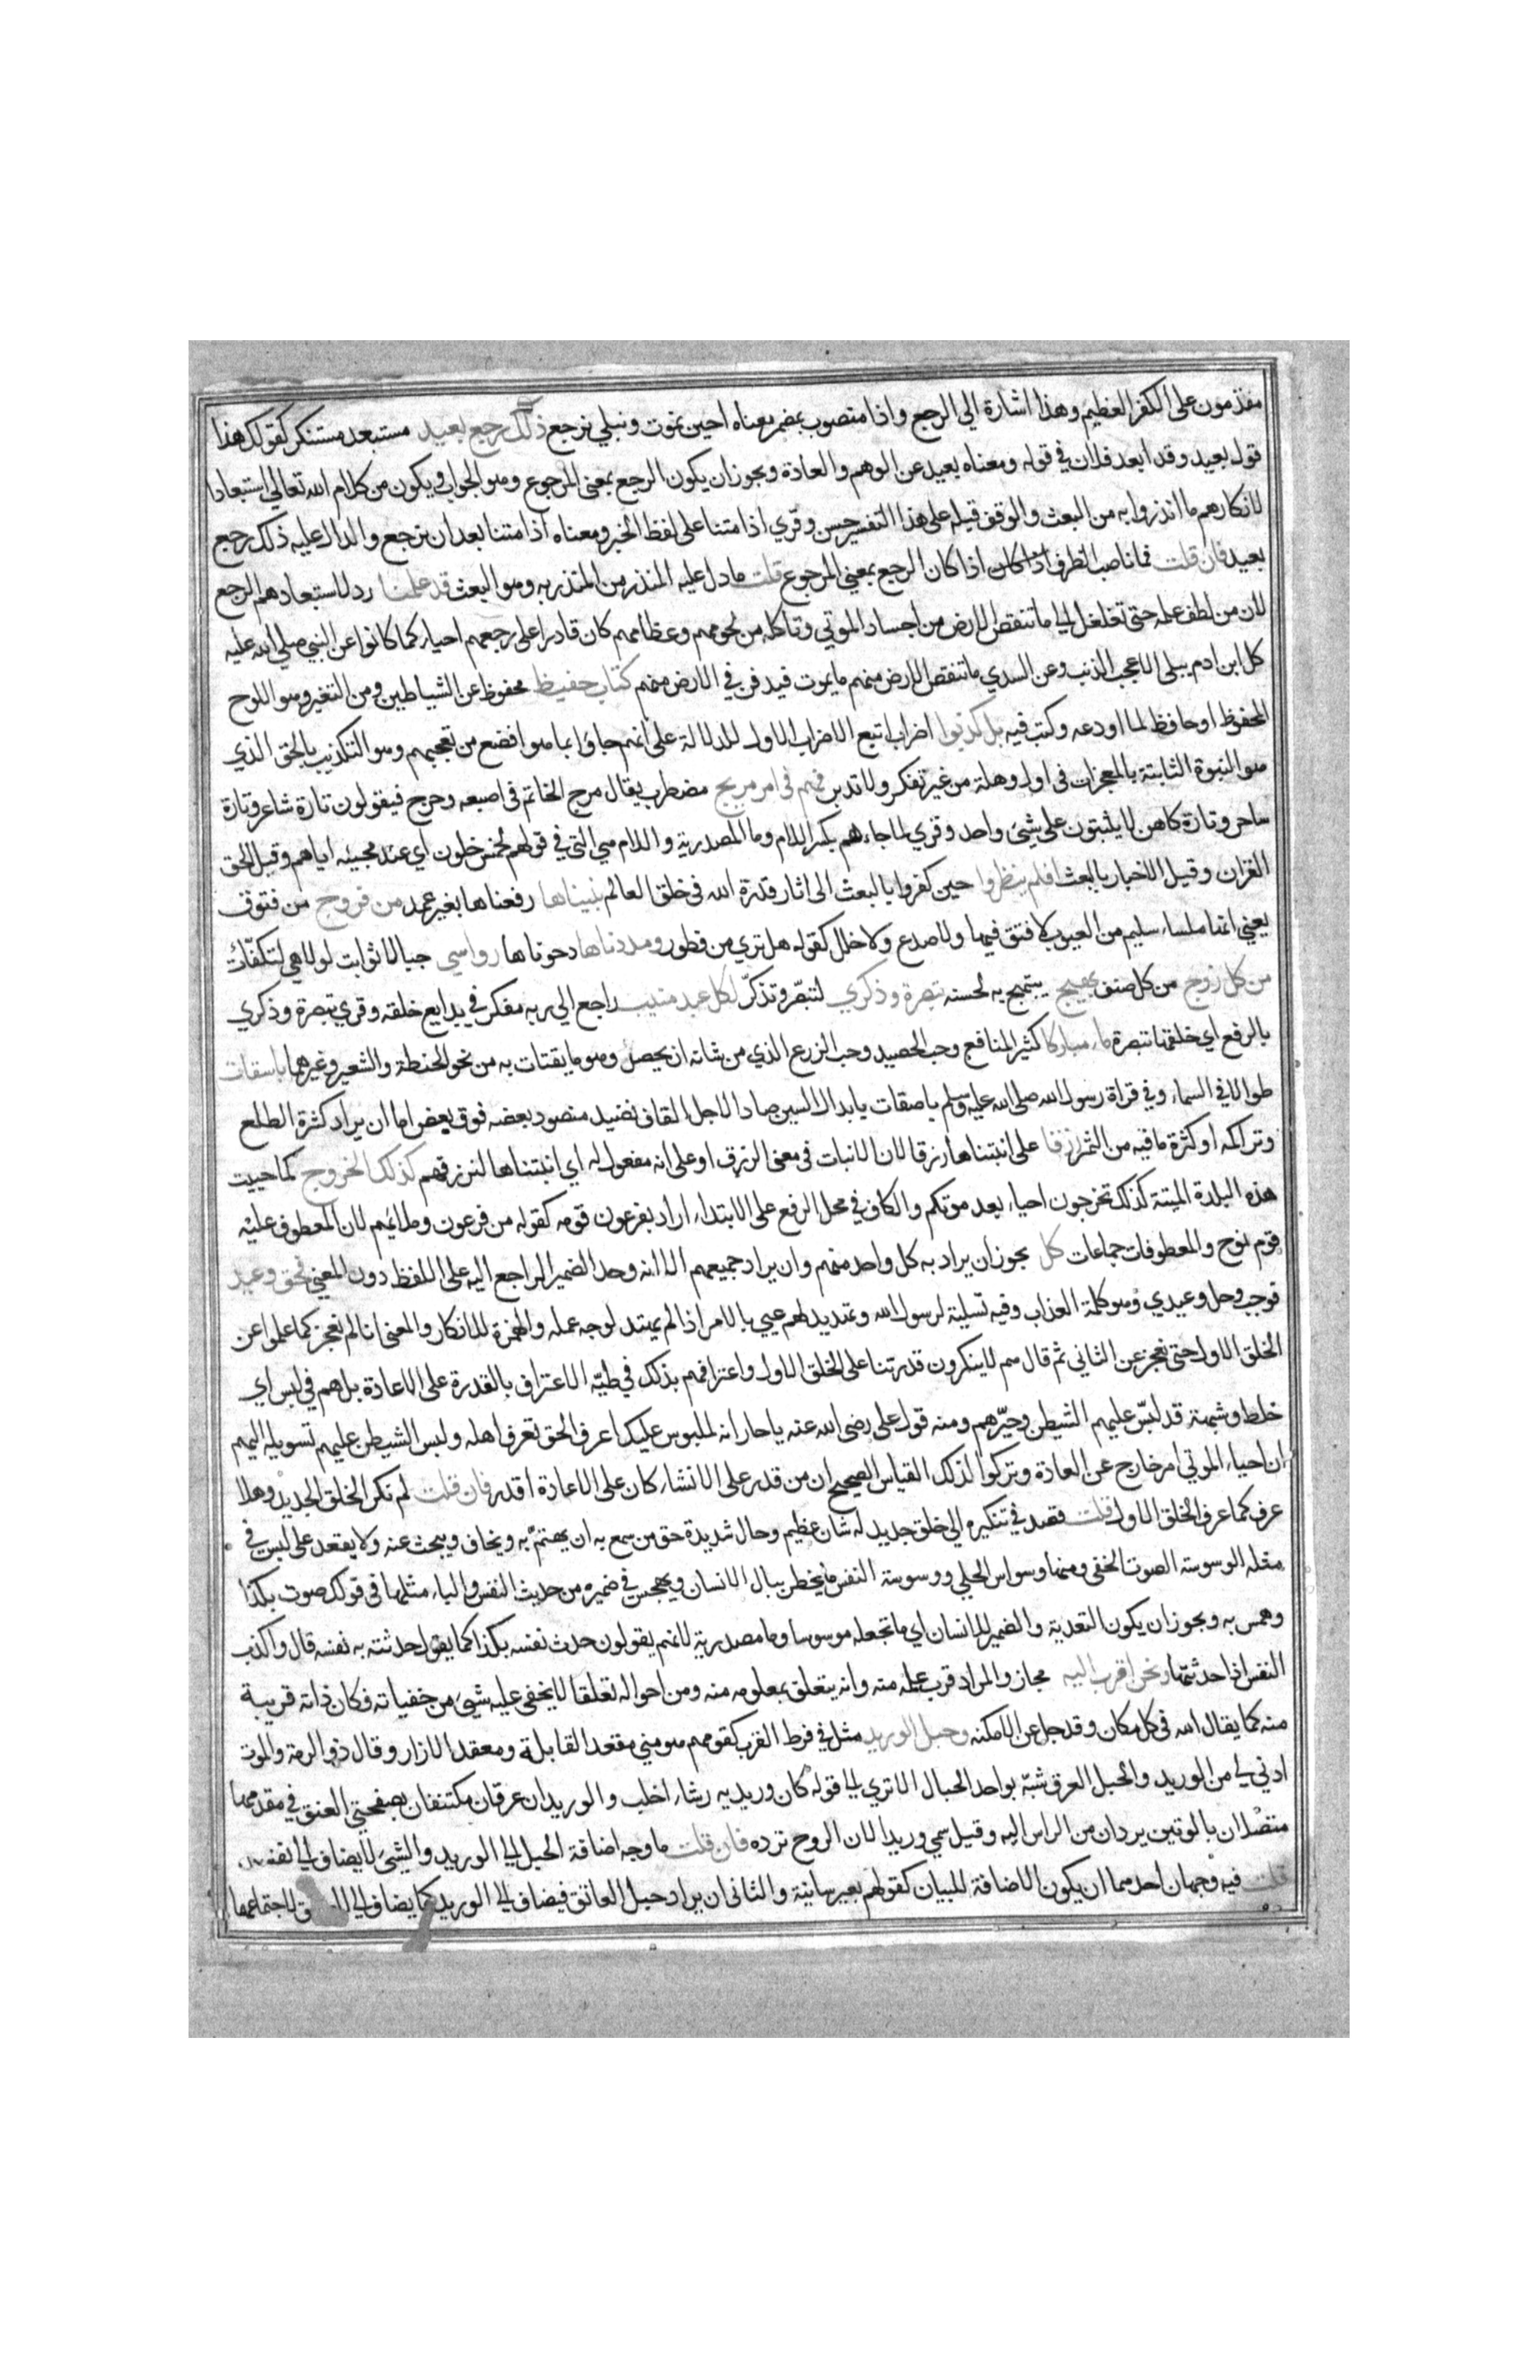 مقدمون على الكفر العظيم وهذا اشارة الى الرجع واذا منصوب بمضمر معناه احين نموت ونبلى نرجع ذلك رجع بعيد مستبعد مستنكر كقولك هذا
قول بعيد وقد ابعد فلان في قوله ومعناه بعيد عن الوهم والعادة ويجوز ان يكون الرجع بمعنى المرجوع وهو الجواب ويكون من كلام الله تعالى استبعادا
لانكارهم ما انذروا به من البعث والوقف قبله على هذا التفسير حسن وقري اذا متنا على لفظ الخبر ومعناه اذا متنا بعد ان نرجع والدال عليه ذلك رجع
بعيد فان قلت فما ناصب الظرف اذا كان الرجع بمعنى المرجوع قلت ما دل عليه المنذر من المنذر به وهو البعث قد علمنا رد لاستبعادهم الرجع
لان من لطف علمه حتى تغلغل الى ما تنقص الارض من اجساد الموتي وتاكله من لحومهم وعظامهم كان قادرا على رجعهم احياء كما كانوا عن النبي صلى الله عليه
كل ابن ادم يبلى الا عجب الذنب وعن السدي ما تنقص الارض منهم ما يموت فيدفن في الارض منهم كتاب حفيظ محفوظ عن الشياطين ومن التغير وهو اللوح
المحفوظ او حافظ لما اودعه وكتب فيه بل كذبوا اضراب اتبع الاضراب الاول للدلالة على انهم جاؤا بما هو افضع من تعجبهم وهو التكذيب بالحق الذي
هو النبوة الثابتة بالمعجزات في اول وهلة من غير تفكر ولا تدبر فهم في امر مريج مضطرب يقال مرج الخاتم في اصبعه وجرج فيقولون تارة شاعر وتارة
ساحر وتارة كاهن لا يثبتون على شيئ واحد وقري لما جاءهم بكسر اللام وما المصدرية واللام هي التي في قولهم لخمس خلون اي عند مجيئه اياهم وقيل الحق
القران وقيل الاخبار بالبعث افلم ينظروا حين كفروا بالبعث الى اثار قدرة الله في خلق العالم بنيناها رفعناها بغير عمد من فروج من فتوق
يعني انها ملساء سليم من العيوب لا فتق فيها ولا صدع ولا خلل كقوله هل ترى من فطور ومددناها دحوناها رواسي جبالا ثوابت لولا هي لتكفّأت
من كل زوج من كل صنف بهيج يبتهج به لحسنه تبصرة وذكرى لتبصّر وتذكّر لكل عبد منيب راجع الى ربه مفكر في بدايع خلقه وقري تبصرة وذكرى
بالرفع اي خلقها تبصرة ماء مباركا كثير المنافع وحب الحصيد وحب الزرع الذي من شانه ان يحصد وهو ما يقتات به من نحو الحنطة والشعير وغيرهما باسقات
طوالا في السماء وفي قراة رسول الله صلى الله عليه وسلم باصقات بابدال السين صادا لاجل القاف نضيد منضود بعضه فوق بعض اما ان يراد كثرة الطلع
وتراكمه او كثرة ما فيه من الثمر رزقا على انبتناها رزقا لان الانبات في معنى الرزق او على انه مفعول له اي انبتناها لنرزقهم كذلك الخروج كما حييت
هذه البلدة الميتة كذلك تخرجون احياء بعد موتكم والكاف في محل الرفع على الابتداء اراد بفرعون قومه كقوله من فرعون وملائهم لان المعطوف عليه
قوم نوح والمعطوفات جماعات كل يجوز ان يراد به كل واحد منهم وان يراد جميعهم الا انه وحد الضمير الراجع اليه على اللفظ دون المعنى فحق وعيد
فوجب وحل وعيدي وهو كلمة العذاب وفيه تسلية لرسول الله وتهديد لهم عيي بالامر اذا لم يهتد لوجه عمله والهمزة للانكار والمعنى انا لم نعجز كما علموا عن
الخلق الاول حتى نعجز عن الثاني ثم قال هم لا ينكرون قدرتنا على الخلق الاول واعترافهم بذلك في طيّه الاعتراف بالقدرة على الاعادة بل هم في لبس اي
خلط وشبهة قد لبّس عليهم الشيطن وحيّرهم ومنه قول على رضى الله عنه يا حار انه لملبوس عليك اعرف الحق تعرف اهله ولبس الشيطن عليهم تسويله اليهم
ان احياء الموتي امر خارج عن العادة وتركوا لذلك القياس الصحيح ان من قدر على الانشاء كان على الاعادة اقدر فان قلت لم نكر الخلق الجديد وهلا
عرف كما عرف الخلق الاول قلت قصد في تنكيره الى خلق جديد له شان عظيم وحال شديدة حق من سمع به ان يهتمّ به ويخاف ويبحث عنه ولا يقعد على لبس في
مثله الوسوسة الصوت الخفي ومنها وسواس الحلي ووسوسة النفس ما يخطر ببال الانسان ويهجس في ضميره من حديث النفس والباء مثلها في قولك صوت بكذا
وهمس به ويجوز ان يكون للتعدية والضمير للانسان اي ما تجعله موسوسا وما مصدرية لانهم يقولون حدث نفسه بكذا كما يقولون حدثته به نفسه قال واكذب
النفس اذا حدثتها ونحن اقرب اليه مجاز والمراد قرب علمه منه وانه يتعلق بمعلومه منه ومن احواله تعلقا لا يخفى عليه شيئ من خفياته فكان ذاته قريبة
منه كما يقال الله في كل مكان وقد جل عن الامكنه وحبل الوريد مثل في فرط القرب كقولهم هو مني مقعد القابلة ومعقد الازار وقال ذو الرمة والموت
ادنى لي من الوريد والحبل العرق شبّه بواحد الحبال الا ترى الى قوله كان وريديه رشاء اخلب والوريدان عرقان مكتنفان بصفحتي العنق في مقدمهما
متصلان بالوتين يردان من الراس اليه وقيل سمي وريدا لان الروح ترده فان قلت ما وجه اضافة الحبل الى الوريد والشيئ لا يضاف الى نفسه
قلت فيه وجهان احدهما ان يكون الاضافة للبيان كقولهم بعير سانية والثاني ان يراد حبل العاتق فيضاف الى الوريد كما يضاف الى العاتق لاجتماعهما